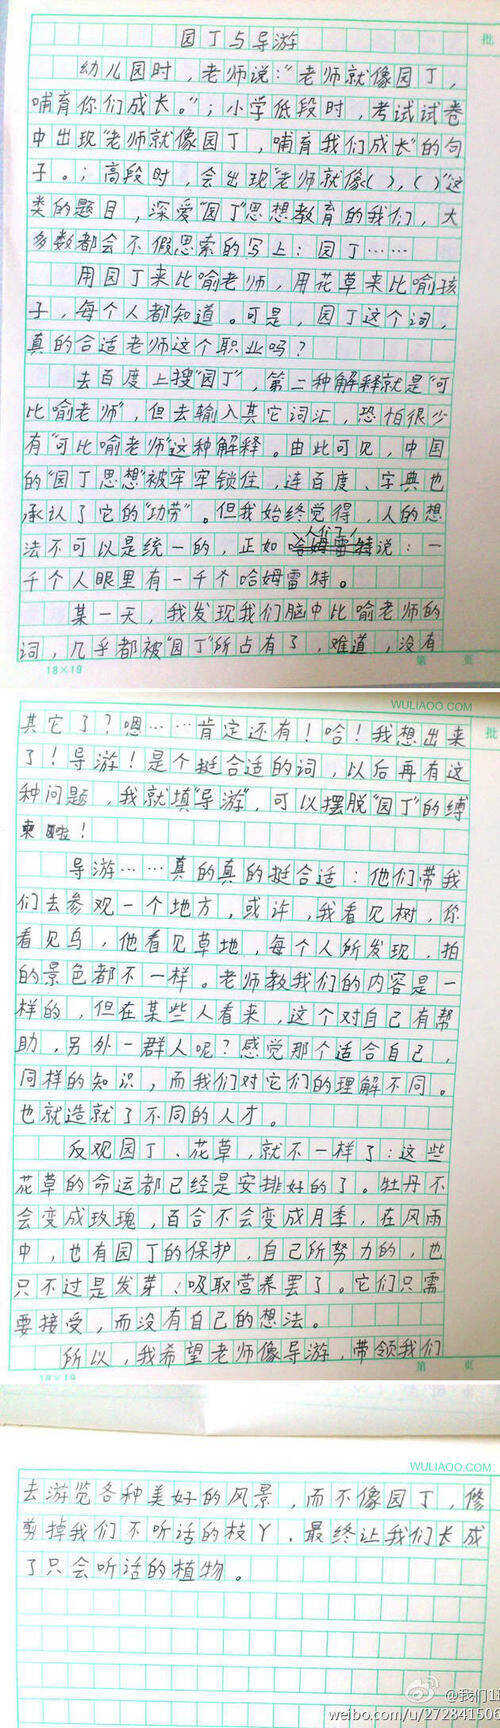 园丁与导游
批
幼儿园时，老师说：“老师就像园丁，
哺育你们成长。”；小学低段时，考试试卷
中出现“老师就像园丁，哺育我们成长”的句
子。；高段时，会出现“老师就像（），（）”这
类的题目，深爱“园丁”思想教育的我们，大
多数都会不假思索的写上：园丁……
用园丁来比喻老师，用花草来比喻孩
子，每个人都知道。可是，园丁这个词，
真的合适老师这个职业吗？
去百度上搜“园丁”，第二种解释就是“可
比喻老师”，但去输入其它词汇，恐怕很少
有“可比喻老师”这种解释。由此可见，中国
的“园丁思想”被牢牢锁住，连百度、字典也
承认了它的“功劳”。但我始终觉得，人的想
法不可以是统一的，正如哈姆雷特说：一
千个人眼里有一千个哈姆雷特。
某一天，我发现我们脑中比喻老师的
词，几乎都被“园丁”所占有了，难道，没有
18×19
第 页
WULIAOO.COM
其它了？嗯……肯定还有！哈！我想出来
批
了！导游！是个挺合适的词，以后再有这
种问题，我就填“导游”，可以摆脱“园丁”的缚
束啦！
导游……真的真的挺合适：他们带我
们去参观一个地方，或许，我看见树，你
看见鸟，他看见草地，每个人所发现、拍
的景色都不一样。老师教我们的内容是一
样的，但在某些人看来，这个对自己有帮
助，另外一群人呢？感觉那个适合自己，
同样的知识，而我们对它们的理解不同。
也就造就了不同的人才。
反观园丁、花草，就不一样了：这些
花草的命运都已经是安排好的了。牡丹不
会变成玫瑰，百合不会变成月季，在风雨
中，也有园丁的保护，自己所努力的，也
只不过是发芽、吸取营养罢了。它们只需
要接受，而没有自己的想法。
所以，我希望老师像导游，带领我们
18×19
第 页
WULIAOO.COM
去游览各种美好的风景，而不像园丁，修
剪掉我们不听话的枝丫、最终让我们长成
了只会听话的植物。
@我们1
weibo.com/u/272841506